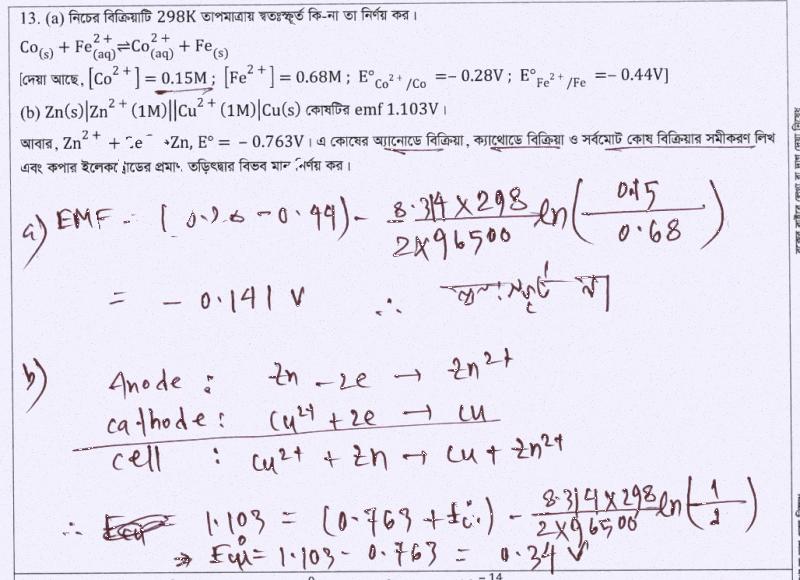 13. (a) নিচের বিক্রিয়াটি 298K তাপমাত্রায় স্বতঃস্ফূর্ত কি-না তা নির্ণয় কর।
Co(s) + Fe²⁺(aq) ⇌ Co²⁺(aq) + Fe(s)
[দেয়া আছে, [Co²⁺] = 0.15M ; [Fe²⁺] = 0.68M ; E°Co²⁺/Co = − 0.28V ; E°Fe²⁺/Fe = − 0.44V]
(b) Zn(s)|Zn²⁺ (1M)||Cu²⁺ (1M)|Cu(s) কোষটির emf 1.103V।
আবার, Zn²⁺ + e⁻ →Zn, E° = − 0.763V। এ কোষের অ্যানোডে বিক্রিয়া, ক্যাথোডে বিক্রিয়া ও সর্বমোট কোষ বিক্রিয়ার সমীকরণ লিখ
এবং কপার প্রমাণ তড়িৎদ্বার বিভব মান নির্ণয় কর।
a) EMF = ( - 0.44) - 8.314 × 298 / 2×96500 ln ( 0.15 / 0.68 )
= - 0.141 V ∴ স্বতঃস্ফূর্ত না
b) Anode : Zn - 2e → Zn²⁺
cathode : Cu²⁺ + 2e → Cu
cell : Cu²⁺ + Zn → Cu + Zn²⁺
∴ 1.103 = (0.763 + ) - 8.314×298 / 2×96500 ln ( 1 / 1 )
⇒ = 1.103 - 0.763 = 0.34 V